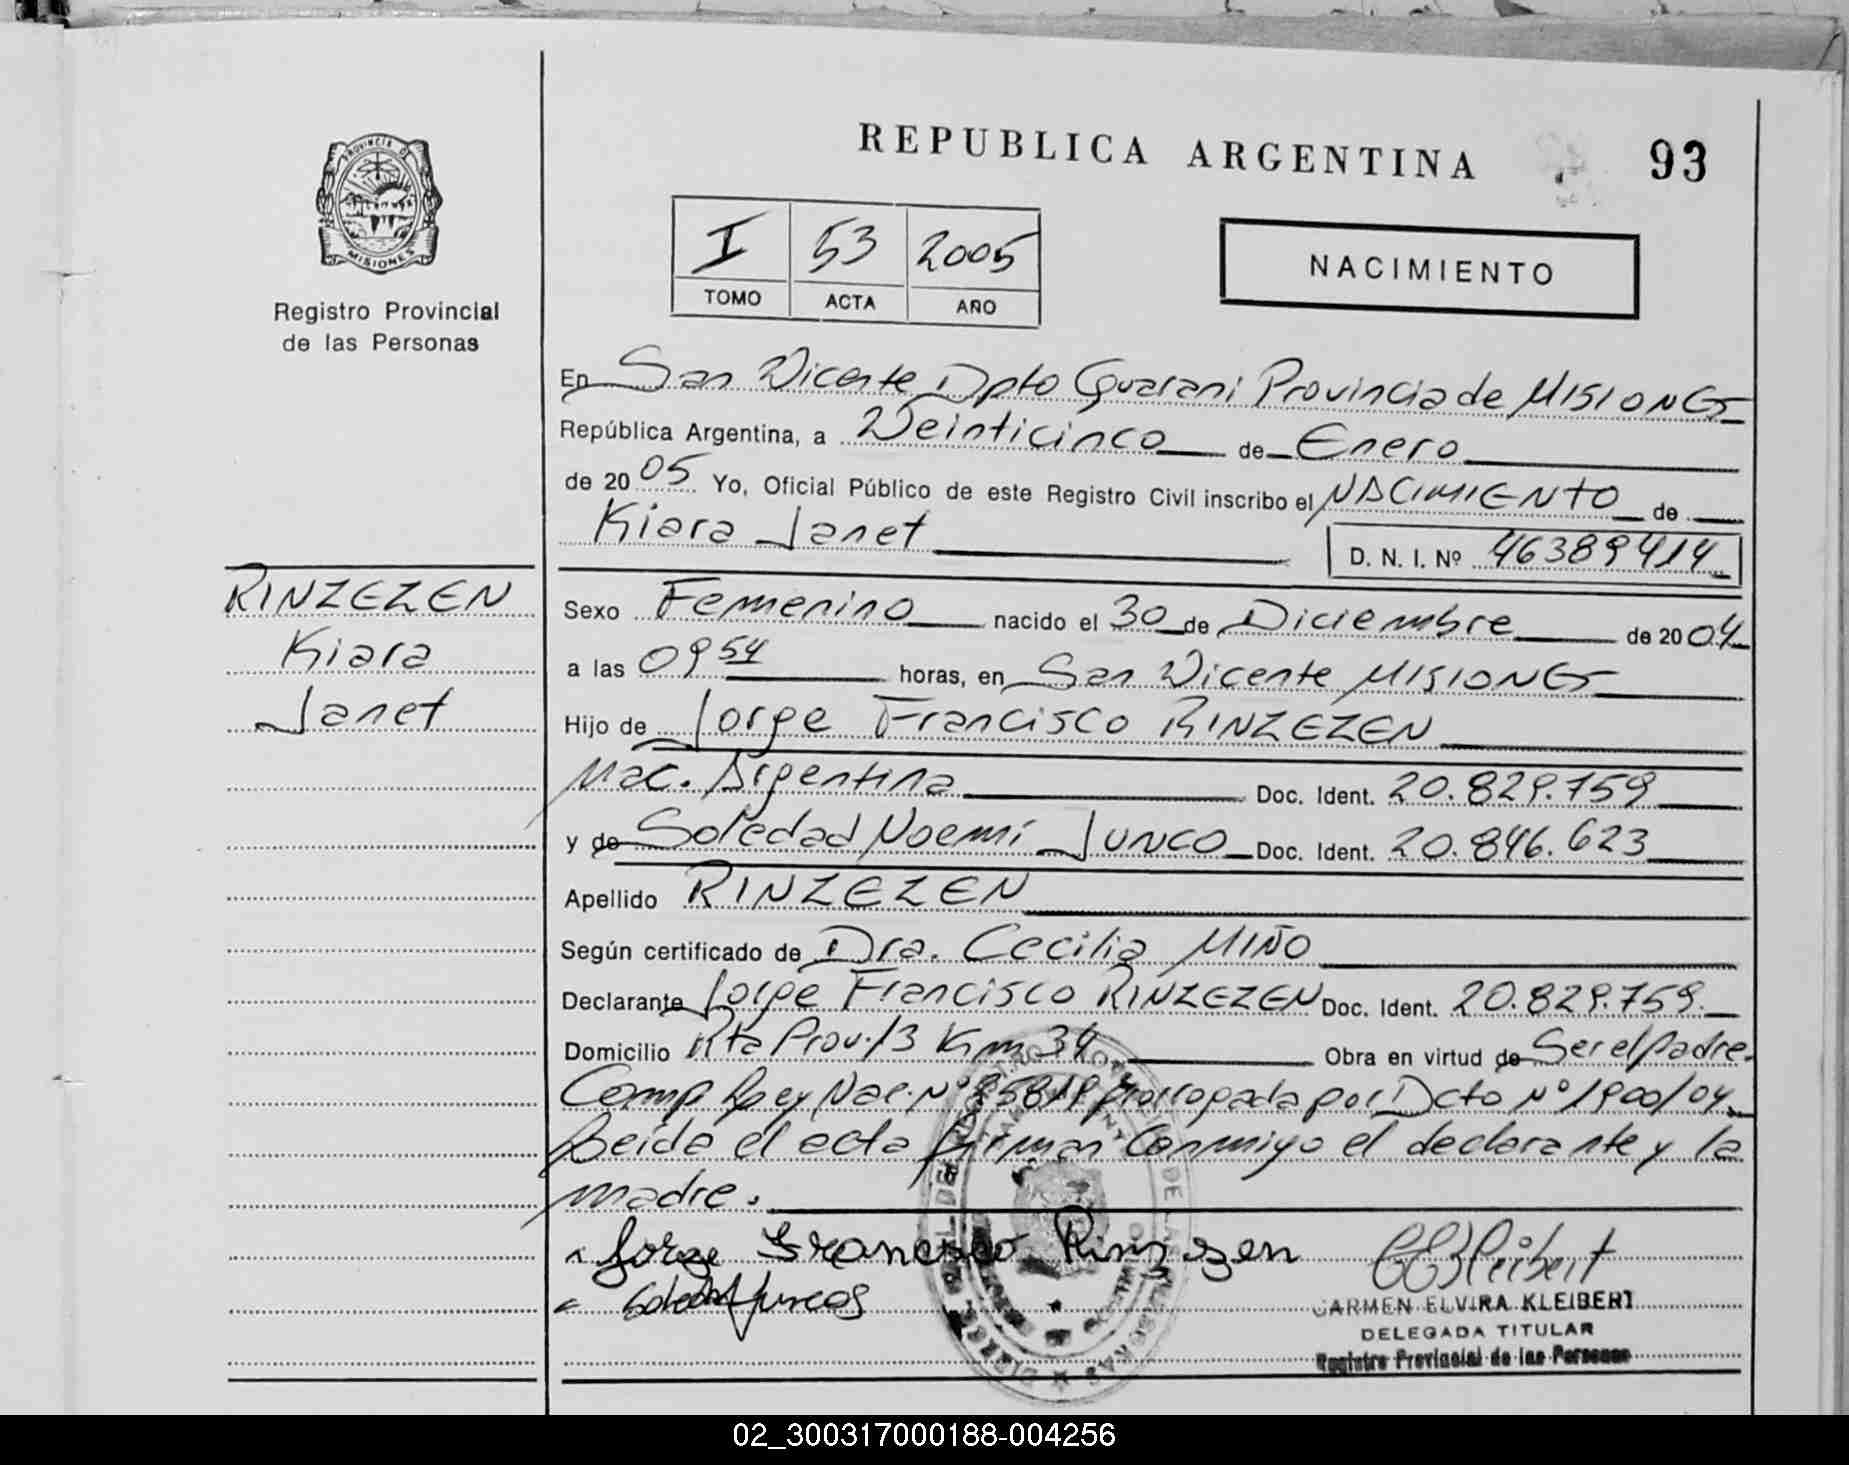 REPUBLICA ARGENTINA
93
PROVINCIA DE
MISIONES
Registro Provincial
de las Personas
I 53 2005
TOMO ACTA AÑO
NACIMIENTO
En San Vicente Dpto Guarani Provincia de MISIONES
República Argentina, a Veinticinco de Enero
de 2005 Yo, Oficial Público de este Registro Civil inscribo el NACIMIENTO de
Kiara Janet D. N. I. Nº 46389414
RINZEZEN
Kiara
Janet
Sexo Femenino nacido el 30 de Diciembre de 2004
a las 09 54 horas, en San Vicente MISIONES
Hijo de Jorge Francisco RINZEZEN
Nac. Argentina Doc. Ident. 20.829.759
y de Soledad Noemi JUNCO Doc. Ident. 20.846.623
Apellido RINZEZEN
Según certificado de Dra. Cecilia MIÑO
Declarante Jorge Francisco RINZEZEN Doc. Ident. 20.829.759.
Domicilio Rta Prov. 13 Km 34 Obra en virtud de Ser el padre.
Ley Nac. Nº prorrogada por Dcto Nº 1900/04
Leida el acta firman conmigo el declarante y la
madre.
Jorge Francisco Rinzezen
CARMEN ELVIRA KLEIBERT
DELEGADA TITULAR
Registro Provincial de las Personas
02_300317000188-004256